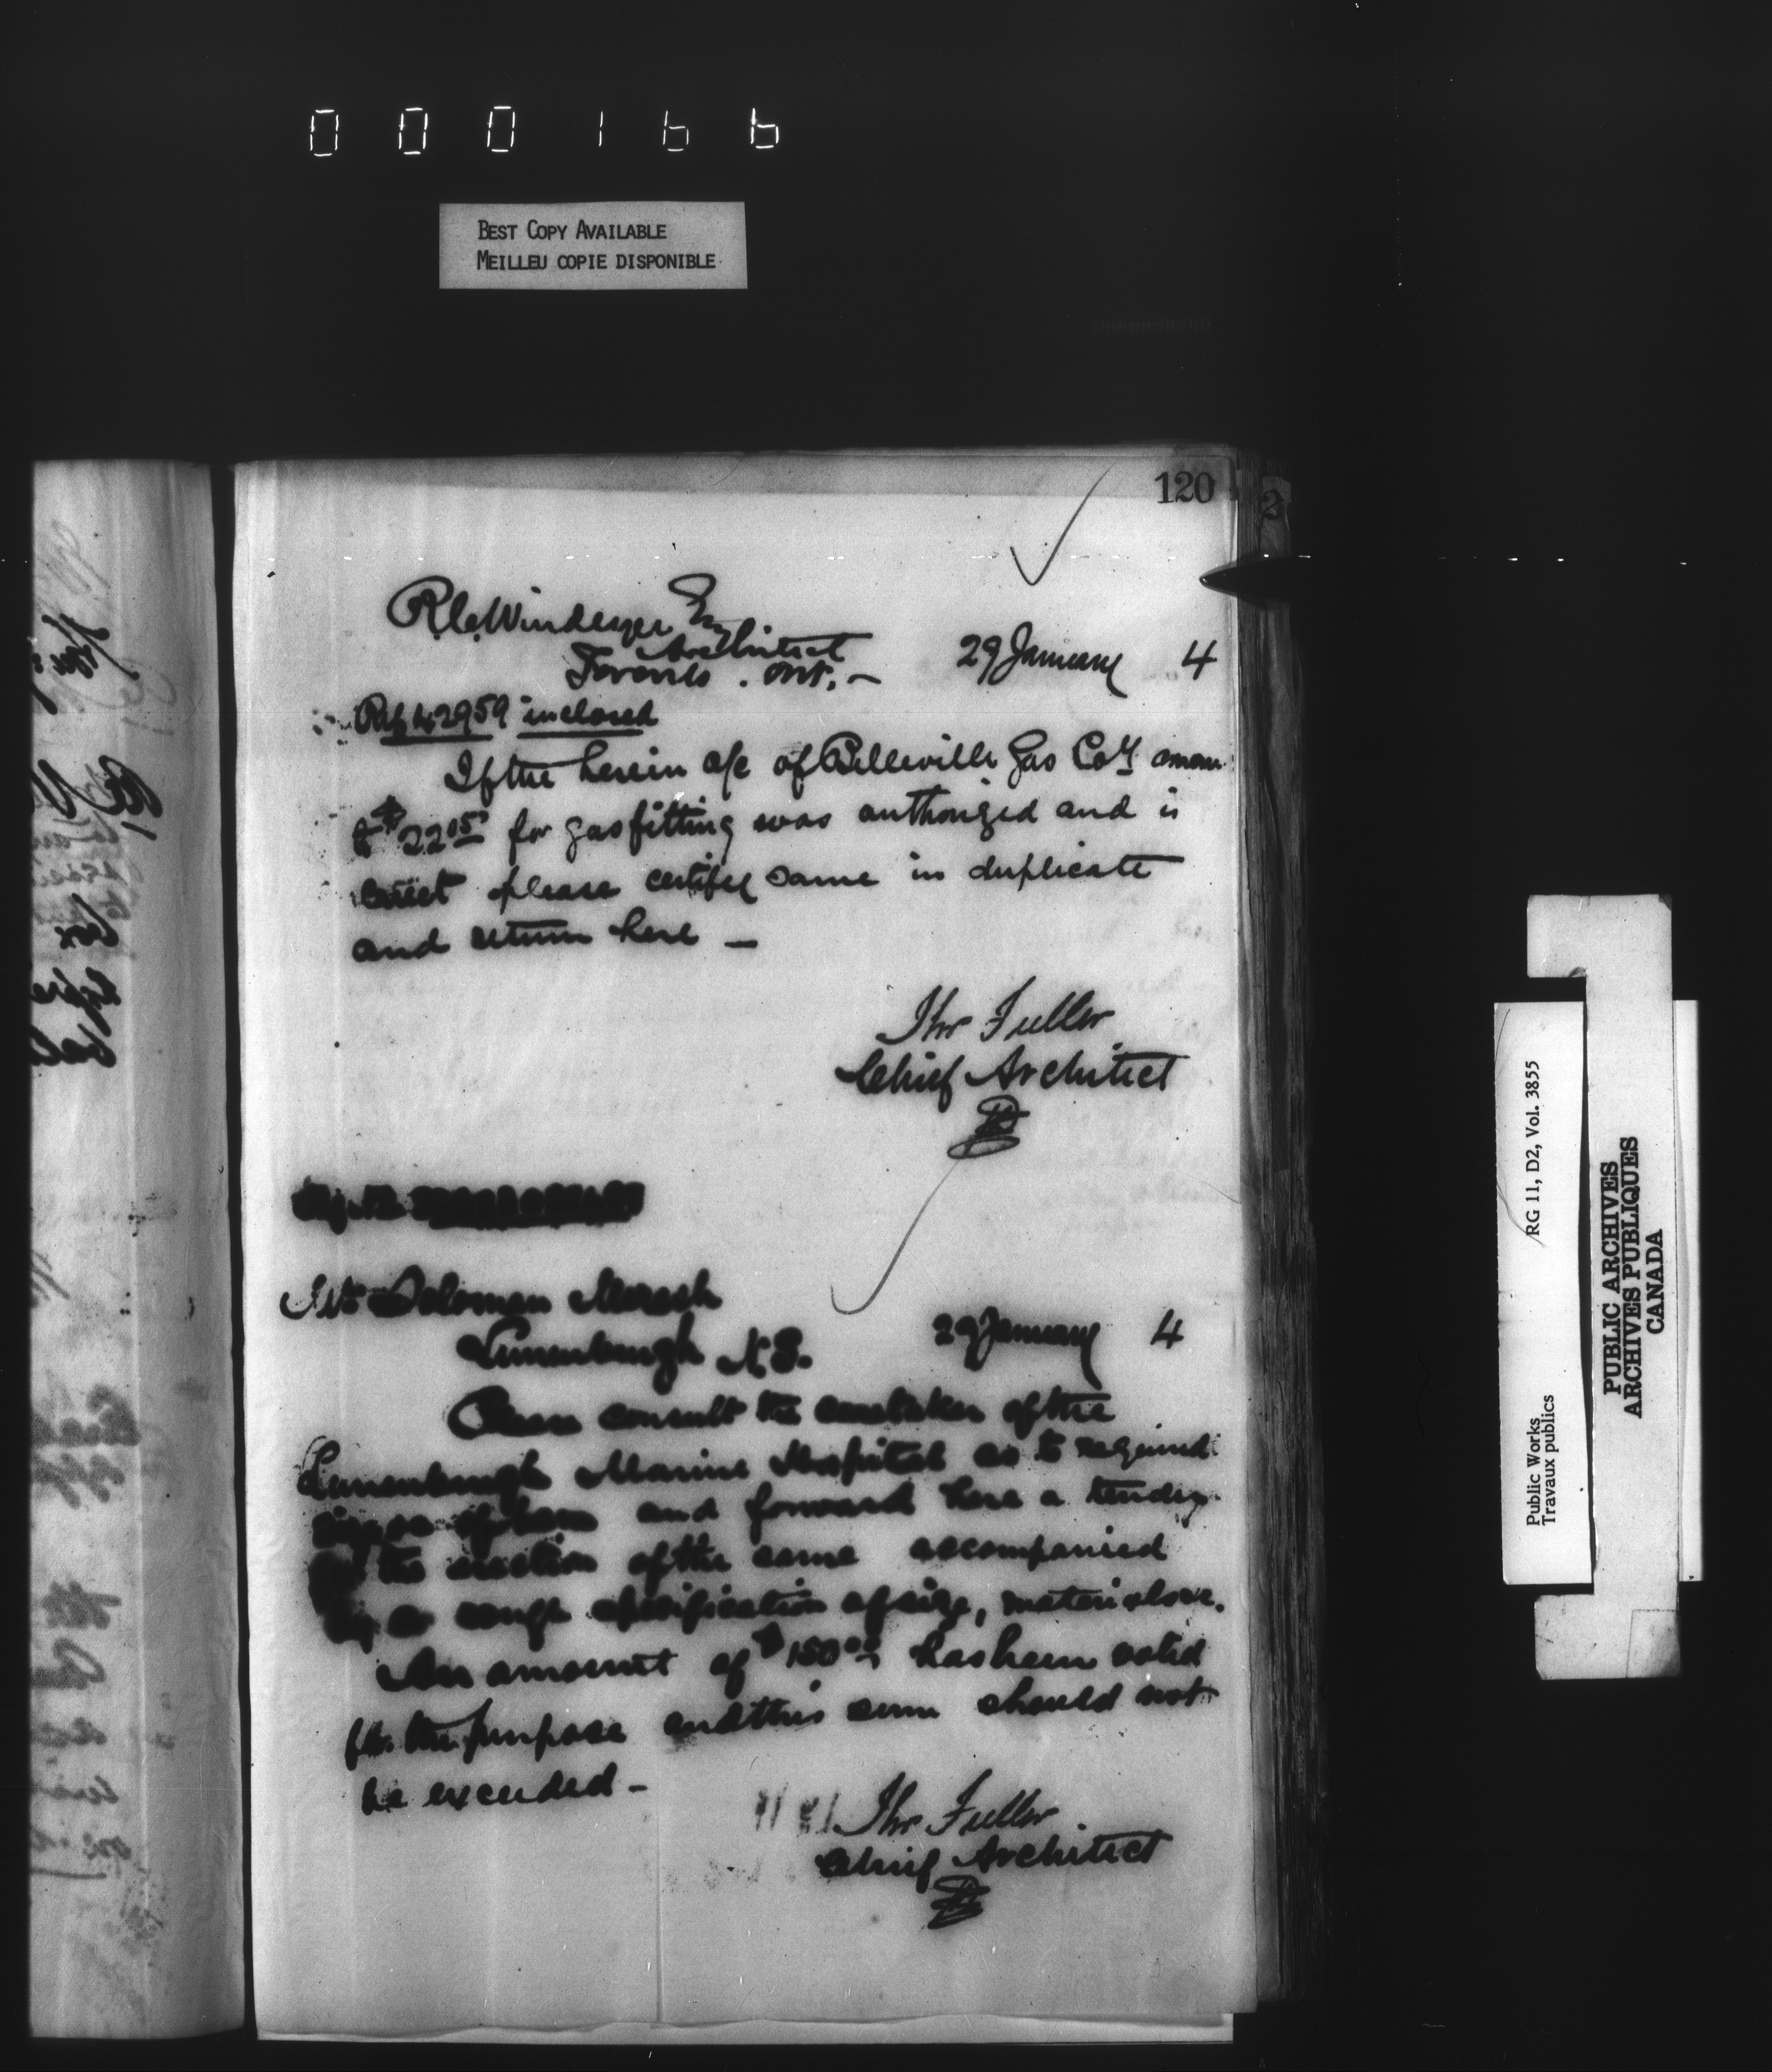 000166
BEST COPY AVAILABLE
MEILLEU COPIE DISPONIBLE
120
R.C. Windeyer Esq
Architect
Toronto . Ont. —
29 January 4
Ref 42959 inclosed
If the herein a/c of Belleville Gas Coy amou
to $22.05 for gasfitting was authorized and is
correct please certify same in duplicate
and return here —
Thos Fuller
Chief Architect
Mr Solomon
Lunenburgh N.S.
29 January 4
Please consult the caretaker of the
Lunenburgh Marine Hospital as to required
and forward here a tender
the erection of the same accompanied
by a rough specification of size, materials &c.
An amount of $150.00 has been voted
for the purpose and this sum should not
be exceeded —
Thos Fuller
Chief Architect
Public Works
Travaux publics
RG 11, D2, Vol. 3855
PUBLIC ARCHIVES
ARCHIVES PUBLIQUES
CANADA